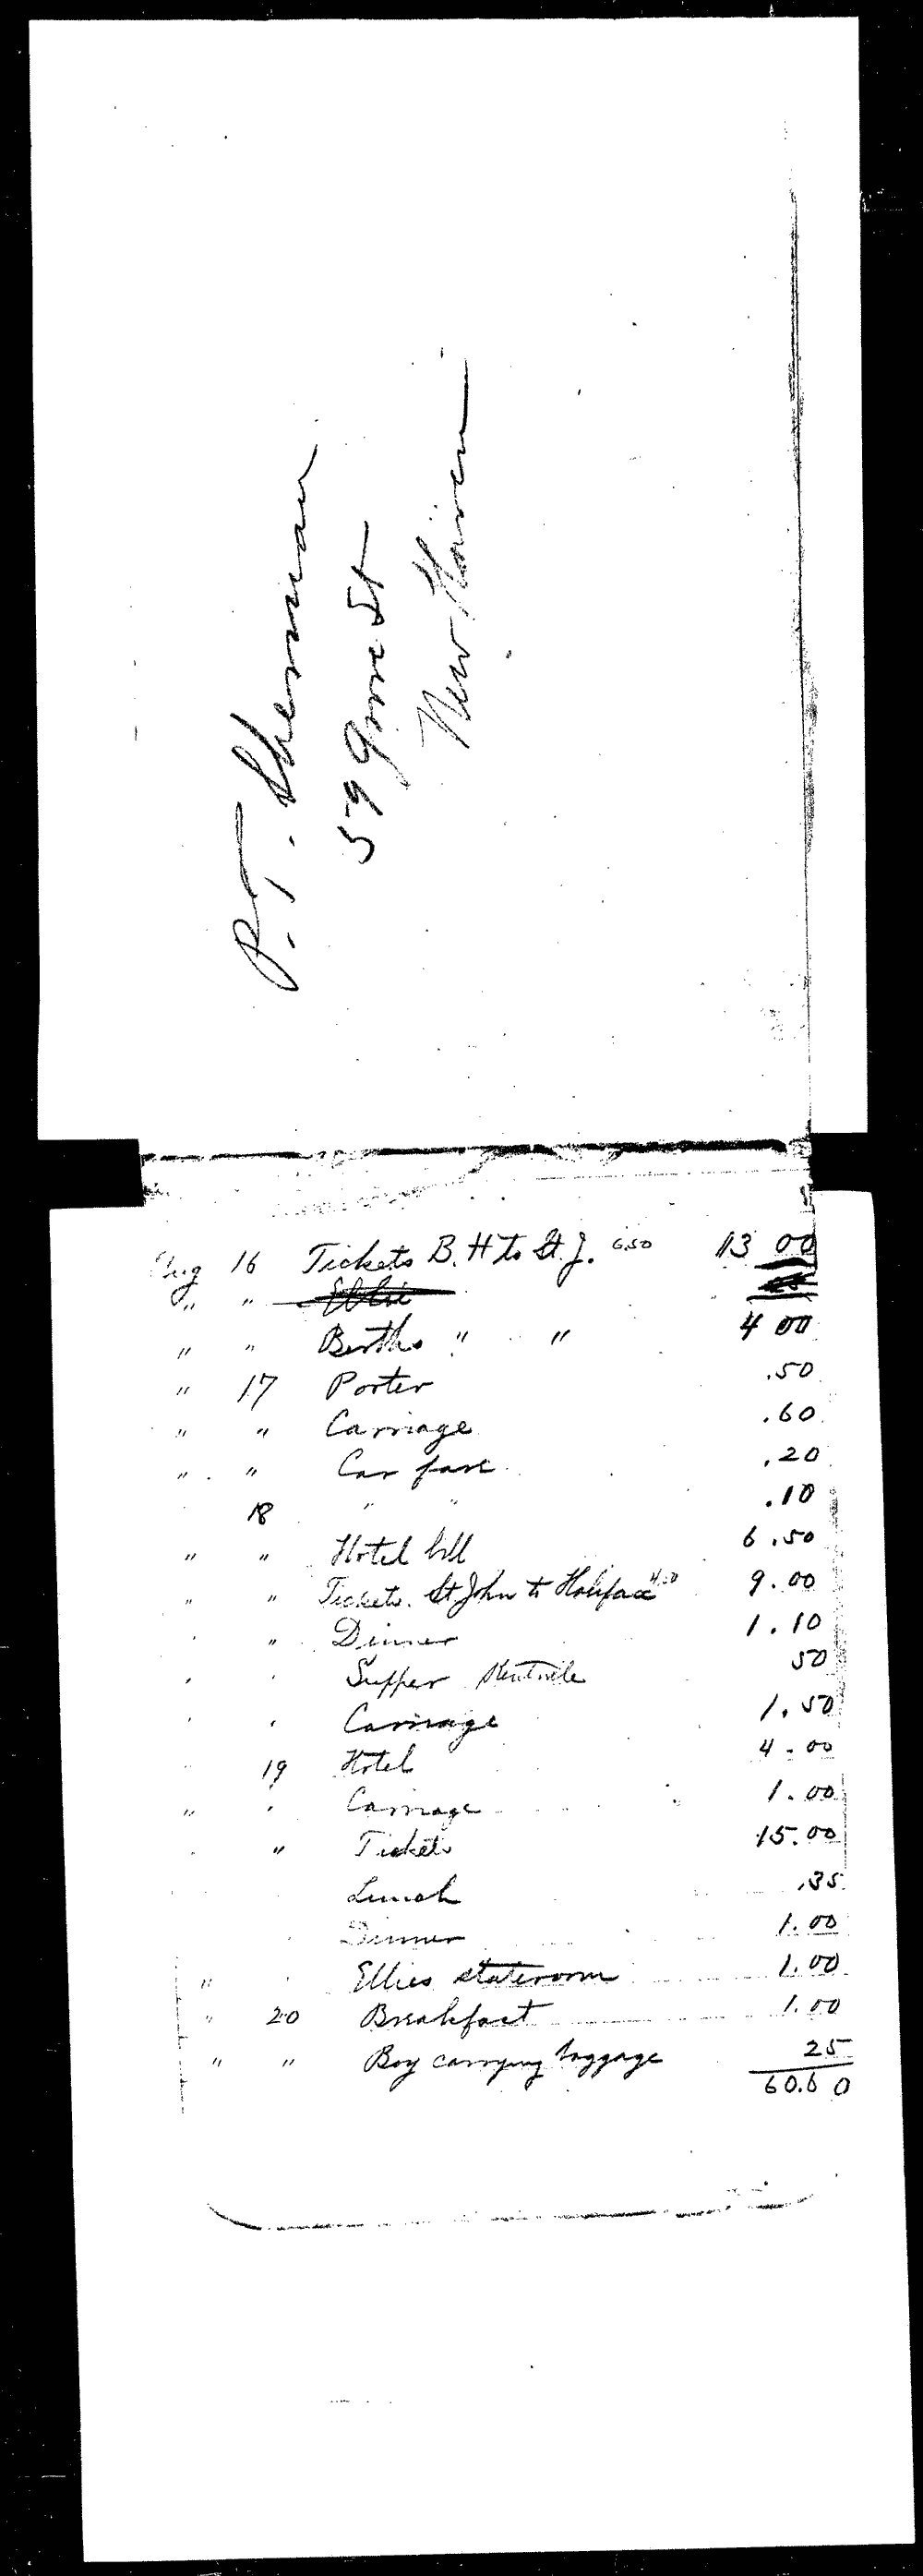 P.T. Sherman
59 Grove St
New Haven
Aug 16 Tickets B. H to St. J. 6.50 13 00
" "
" " Berths " " 4 00
" 17 Porter .50
" " Carriage .60
" " Car fare .20
18 " " .10
" " Hotel bill 6.50
" " Tickets. St John to Halifax 4.50 9.00
" " Dinner 1.10
" " Supper Kentville 50
" " Carriage 1.50
19 Hotel 4.00
" " Carriage 1.00
" " Tickets 15.00
Lunch .35
Dinner 1.00
" " Ellies stateroom 1.00
" 20 Breakfast 1.00
" " Boy carrying baggage 25
60.60